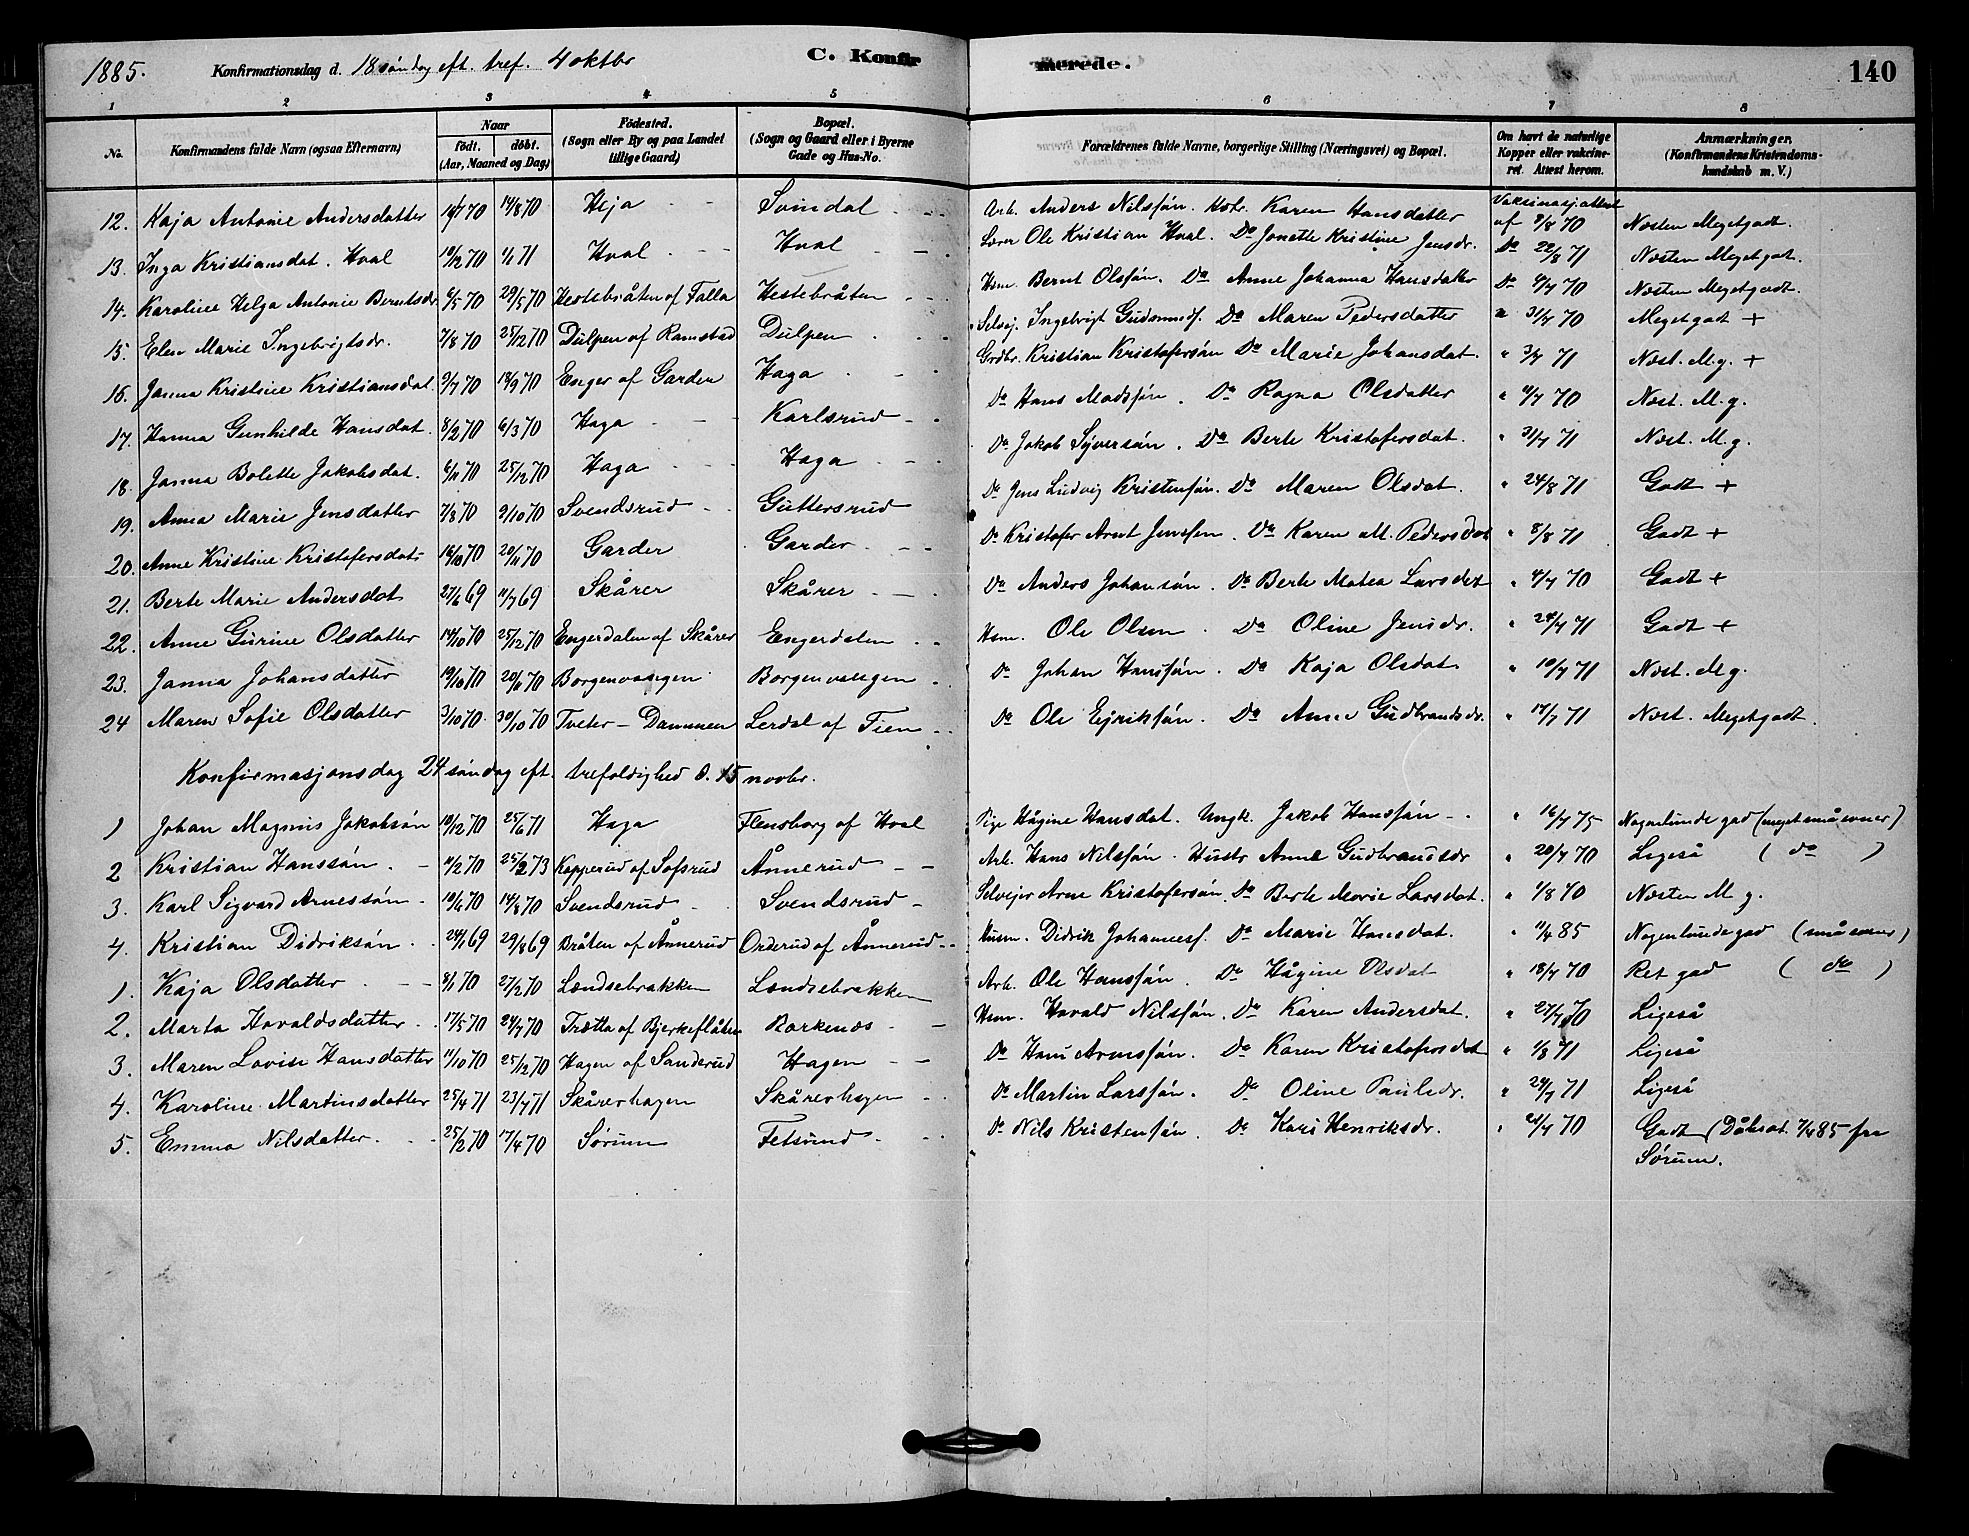 1885. Konfirmationsdag d. 18 søndag eft. tref. 4 oktbr C. Konfirmerede. 140
1 2 3 4 5 6 7 8
No. Konfirmandens fulde Navn (ogsaa Efternavn) Naar födt. döbt. (Aar, Maaned og Dag) Födested. (Sogn eller By og paa Landet tillige Gaard) Bopæl. (Sogn og Gaard eller i Byerne Gade og Hus-No. Forældrenes fulde Navne, borgerlige Stilling (Næringsvei) og Bopæl. Om havt de naturlige Kopper eller vakcineret. Attest herom. Anmærkninger. (Konfirmandens Kristendomskundskab m. V.)
12. Kaja Antonie Andersdatter 70 14/8 70 Heja Svindal Arb. Anders Nilssøn. Hstr. Karen Hansdatter Vaksinasjattest af 9/8 70 Næsten Megetgodt.
13. Inga Kristiansdat. Hval 10/12 70 71 Hval Hval Lærer Ole Kristian Hval. Do Jonette Kristine Jensdr. Do 22/8 71 Næsten Megetgot.
14. Karoline Helga Antonie Berntsdr 6/5 70 29/5 70 Hestebråten af Falla Hestebråten Hsm. Bernt Olssøn. Do Anne Johanna Hansdatter Do 4/7 70 Næsten Megetgodt.
15. Elen Marie Ingebrigtsdr. 7/8 70 25/12 70 Dulpen af Ramstad Dulpen Selvej. Ingebrigt Gudmunds. Do Maren Pedersdatter " 31/7 70 Megetgodt +
16. Janna Kristine Kristiansdat. 9/7 70 18/9 70 Enger af Garder Haga Grdbr. Kristian Kristofersøn Do Marie Johansdat. " 3/7 71 Næst. M.g. +
17. Hanna Gunhilde Hansdat. 8/2 70 6/3 70 Haga Karlsrud Do Hans Madssøn. Do Ragna Olsdatter " 4/7 70 Næst. M.g.
18. Janna Bolette Jakobsdat. 6/11 70 25/12 70 Haga Haga Do Jakob Syversøn. Do Berte Kristofersdat. " 31/7 71 Næst. M.g.
19. Anna Marie Jensdatter 7/8 70 2/10 70 Svendsrud Guttersrud Do Jens Ludvig Kristensøn. Do Maren Olsdat. " 24/8 71 Godt +
20. Anne Kristine Kristofersdatr 16/10 70 20/11 70 Garder Garder Do Kristofer Arnt Jenssøn. Do Karen M. Pedersdat " 8/8 71 Godt +
21. Berte Marie Andersdat 27/6 69 11/7 69 Skårer Skårer Do Anders Johansøn. Do Berte Matea Larsdat " 4/7 70 Godt +
22. Anne Gurine Olsdatter 14/10 70 25/12 70 Engerdalen af Skårer Engerdalen Hsm. Ole Olsen. Do Oline Jensdr. " 24/7 71 Godt +
23. Janna Johansdatter 19/10 70 20/11 70 Borgenvangen Borgenvangen Do Johan Hanssøn. Do Kaja Olsdat " 10/7 71 Næst. M.g.
24 Maren Sofie Olsdatter 3/10 70. 30/10 70 Tveter - Dammen Lerdal af Fien Do Ole Ejriksøn. Do Anne Gudbrandsdr. " 17/7 71 Næst. Megetgodt.
Konfirmasjonsdag 24 søndag eft. trefoldighed d. 15 novbr.
1 Johan Magnus Jakobsøn 10/12 70 25/6 71 Haga Flensborg af Hval Pige Hågine Hansdat. Ungk. Jakob Hanssøn " 16/7 75 Nogenlunde god (meget små evner)
2 Kristian Hanssøn. 11/2 70 25/2 73 Kopperud af Sofsrud Ånnerud Arb. Hans Nilssøn. Hustr Anne Gudbrandsdr " 20/7 70 Ligeså (do)
3. Karl Sigvard Arnessøn 19/6 70 14/8 70 Svendsrud Svendsrud Selvejer Arne Kristofersøn. Do Berte Marie Larsdat. " 1/8 70 Næsten M.g.
4. Kristian Didriksøn. 24/1 69 29/8 69 Bråten af Ånnerud Orderud af Ånnerud Husm. Didrik Johanness. Do Marie Hansdat. " 11/4 85 Nogenlunde god (små evner)
1. Kaja Olsdatter 8/1 70 27/2 70 Lændsebrakken Lændsebrakken Arb. Ole Hanssøn. Do Hågine Olsdat " 18/7 70 Ret god (do)
2. Marta Havaldsdatter 17/5 70 24/7 70 Trætta af Bjerkeflåten Barkenæs Hsm. Havald Nilssøn. Do Karen Andersdat. " 27/7 70 Ligeså
3. Maren Lovise Hansdatter 11/10 70 25/12 70 Hagen af Sanderud Hagen Do Hans Arnessøn. Do Karen Kristofersdat " 1/8 71 Ligeså
4. Karoline Martinsdatter 25/4 71 23/7 71 Skårerhagen Skårerhagen Do Martin Larssøn. Do Oline Paulsdr. " 24/7 71 Ligeså
5. Emma Nilsdatter. 25/2 70 17/4 70 Sørum Fetsund Do Nils Kristensøn. Do Kari Henriksdr. " 21/7 70 Godt (Dåbsat. 7/4 85 fra
Sørum.